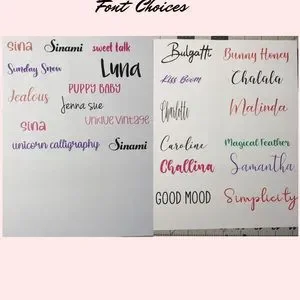 Font Choices
Sina Sinami sweet talk
Sunday Snow Luna
Jealous PUPPY BABY
Jenna sue
UNIQUE VINTAGE
Sina
unicorn calligraphy Sinami
Bulgatti Bunny Honey
Kiss Boom Chalala
Charlotte Malinda
Caroline Magical Feather
Challina Samantha
GOOD MOOD Simplicity